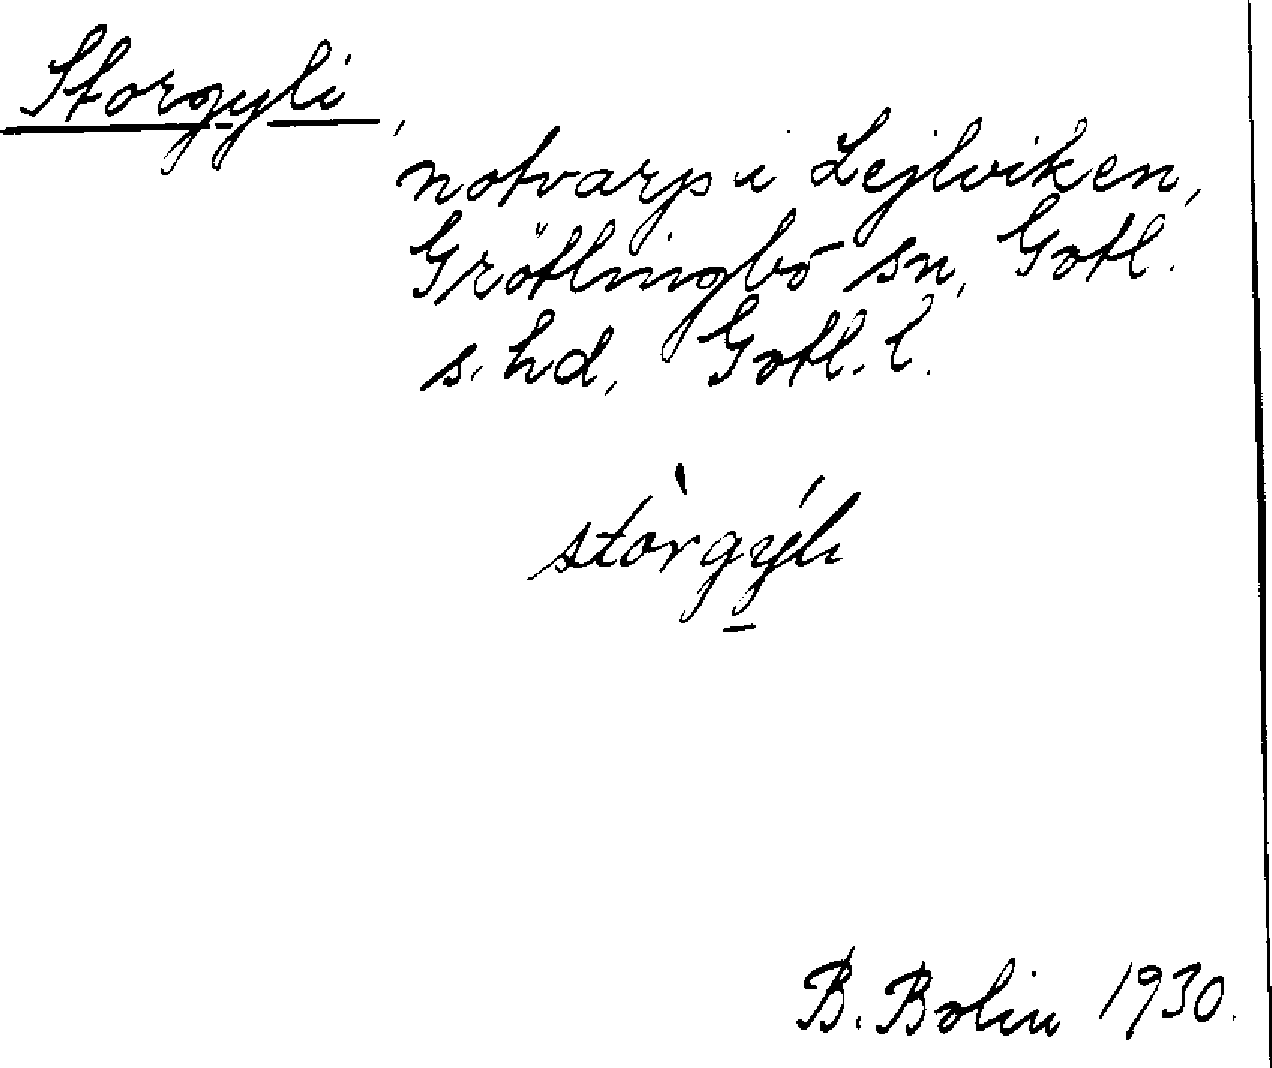 Storgyli,
notvarp i Lejlviken,
Grötlingbo sn, Gotl.
s. hd, Gotl. l.
stòrgýli
B. Bolin 1930.